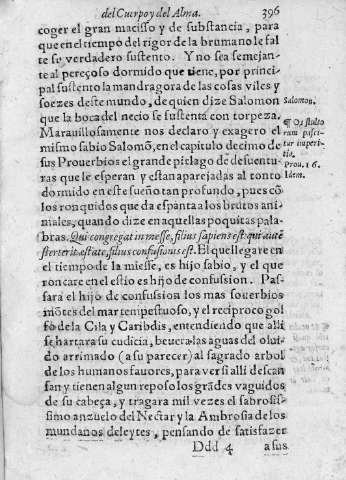 del Cuerpo y del Alma. 396
coger el gran macisso y de substancia, para
que en el tiempo del rigor de la bruma no le fal
te su verdadero sustento. Y no sea semejan-
te al pereçoso dormido que tiene, por princi
pal sustento la mandragora de las cosas viles y
soezes deste mundo, de quien dize Salomon
que la boca del necio se sustenta con torpeza.
Marauillosamente nos declaro y exagero el
mismo sabio Salomõ, en el capitulo decimo de
sus Prouerbios el grande pielago de desuentu
ras que le esperan y estan aparejadas al tonto
dormido en este sueño tan profundo, pues cõ
los ronquidos que da espanta a los brutos ani
males, quando dize en aquellas poquitas pala
bras. Qui congregat in messe, filius sapiens est: qui autē
stertit æstate, filius confusionis est. El que llegare en
el tiempo de la miesse, es hijo sabio, y el que
roncare en el estio es hijo de confusion. Pas-
sara el hijo de confusion los mas souerbios
mõtes del mar tempestuoso, y el reciproco gol
fo de la Cila y Caribdis, entendiendo que alli
se hartara su cudicia, beuera las aguas del olui
do arrimado (a su parecer) al sagrado arbol
de los humanos fauores, para ver si alli descan
san y tienen algun reposo los grãdes vaguidos
de su cabeça, y tragara mil vezes el sabrosis-
simo anzuelo del Nectar y la Ambrosia de los
mundanos deleytes, pensando de satisfazer
Ddd 4 a sus
Salomon.
¶ Os stulto
rum pasci-
tur imperi-
tia.
Prou. 16.
Idem.